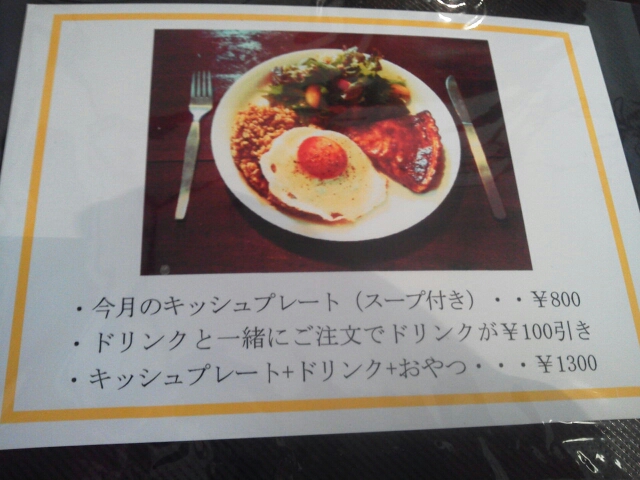 ・今月のキッシュプレート（スープ付き）・・￥800
・ドリンクと一緒にご注文でドリンクが￥100引き
・キッシュプレート+ドリンク+おやつ・・・￥1300